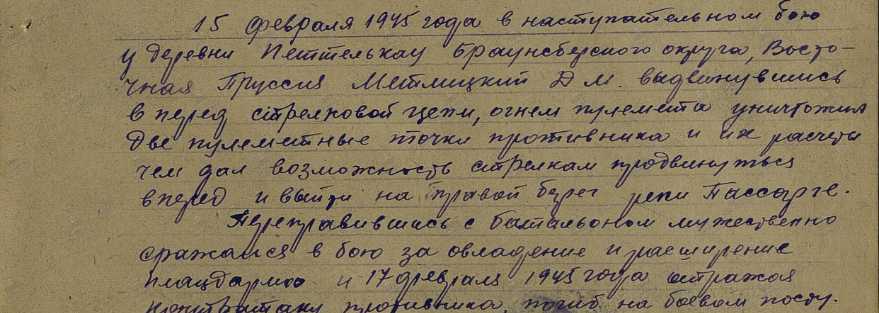 15 февраля 1945 года в наступательном бою
у деревни Петтелькау Браунсбергского округа, Восто-
чная Пруссия Метлицкий Д М. выдвинувшись
в перед стрелковой цепи, огнем пулемета уничтожил
две пулеметные точки противника и их расчеты
чем дал возможность стрелкам продвинуться
вперед и выйти на правый берег реки Пассарге.
Переправившись с батальоном мужественно
сражался в бою за овладение и расширение
плацдарма и 17 февраля 1945 года отражая
контратаку противника, погиб на боевом посту.